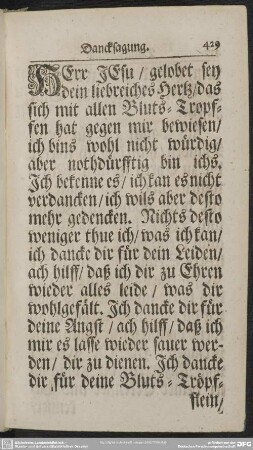 Dancksagung. 429
HErr JEsu / gelobet sey
dein liebreiches Hertz/das
sich mit allen Bluts-Tropf-
fen hat gegen mir bewiesen/
ich bins wohl nicht würdig/
aber nothdürfftig bin ichs.
Ich bekenne es/ ich kan es nicht
verdancken/ ich wils aber desto
mehr gedencken. Nichts desto
weniger thue ich/ was ich kan/
ich dancke dir für dein Leiden/
ach hilff/ daß ich dir zu Ehren
wieder alles leide/ was dir
wohlgefält. Ich dancke dir für
deine Angst / ach hilff/ daß ich
mir es lasse wieder sauer wer-
den/ dir zu dienen. Ich dancke
dir für deine Bluts-Tröpf-
flein/